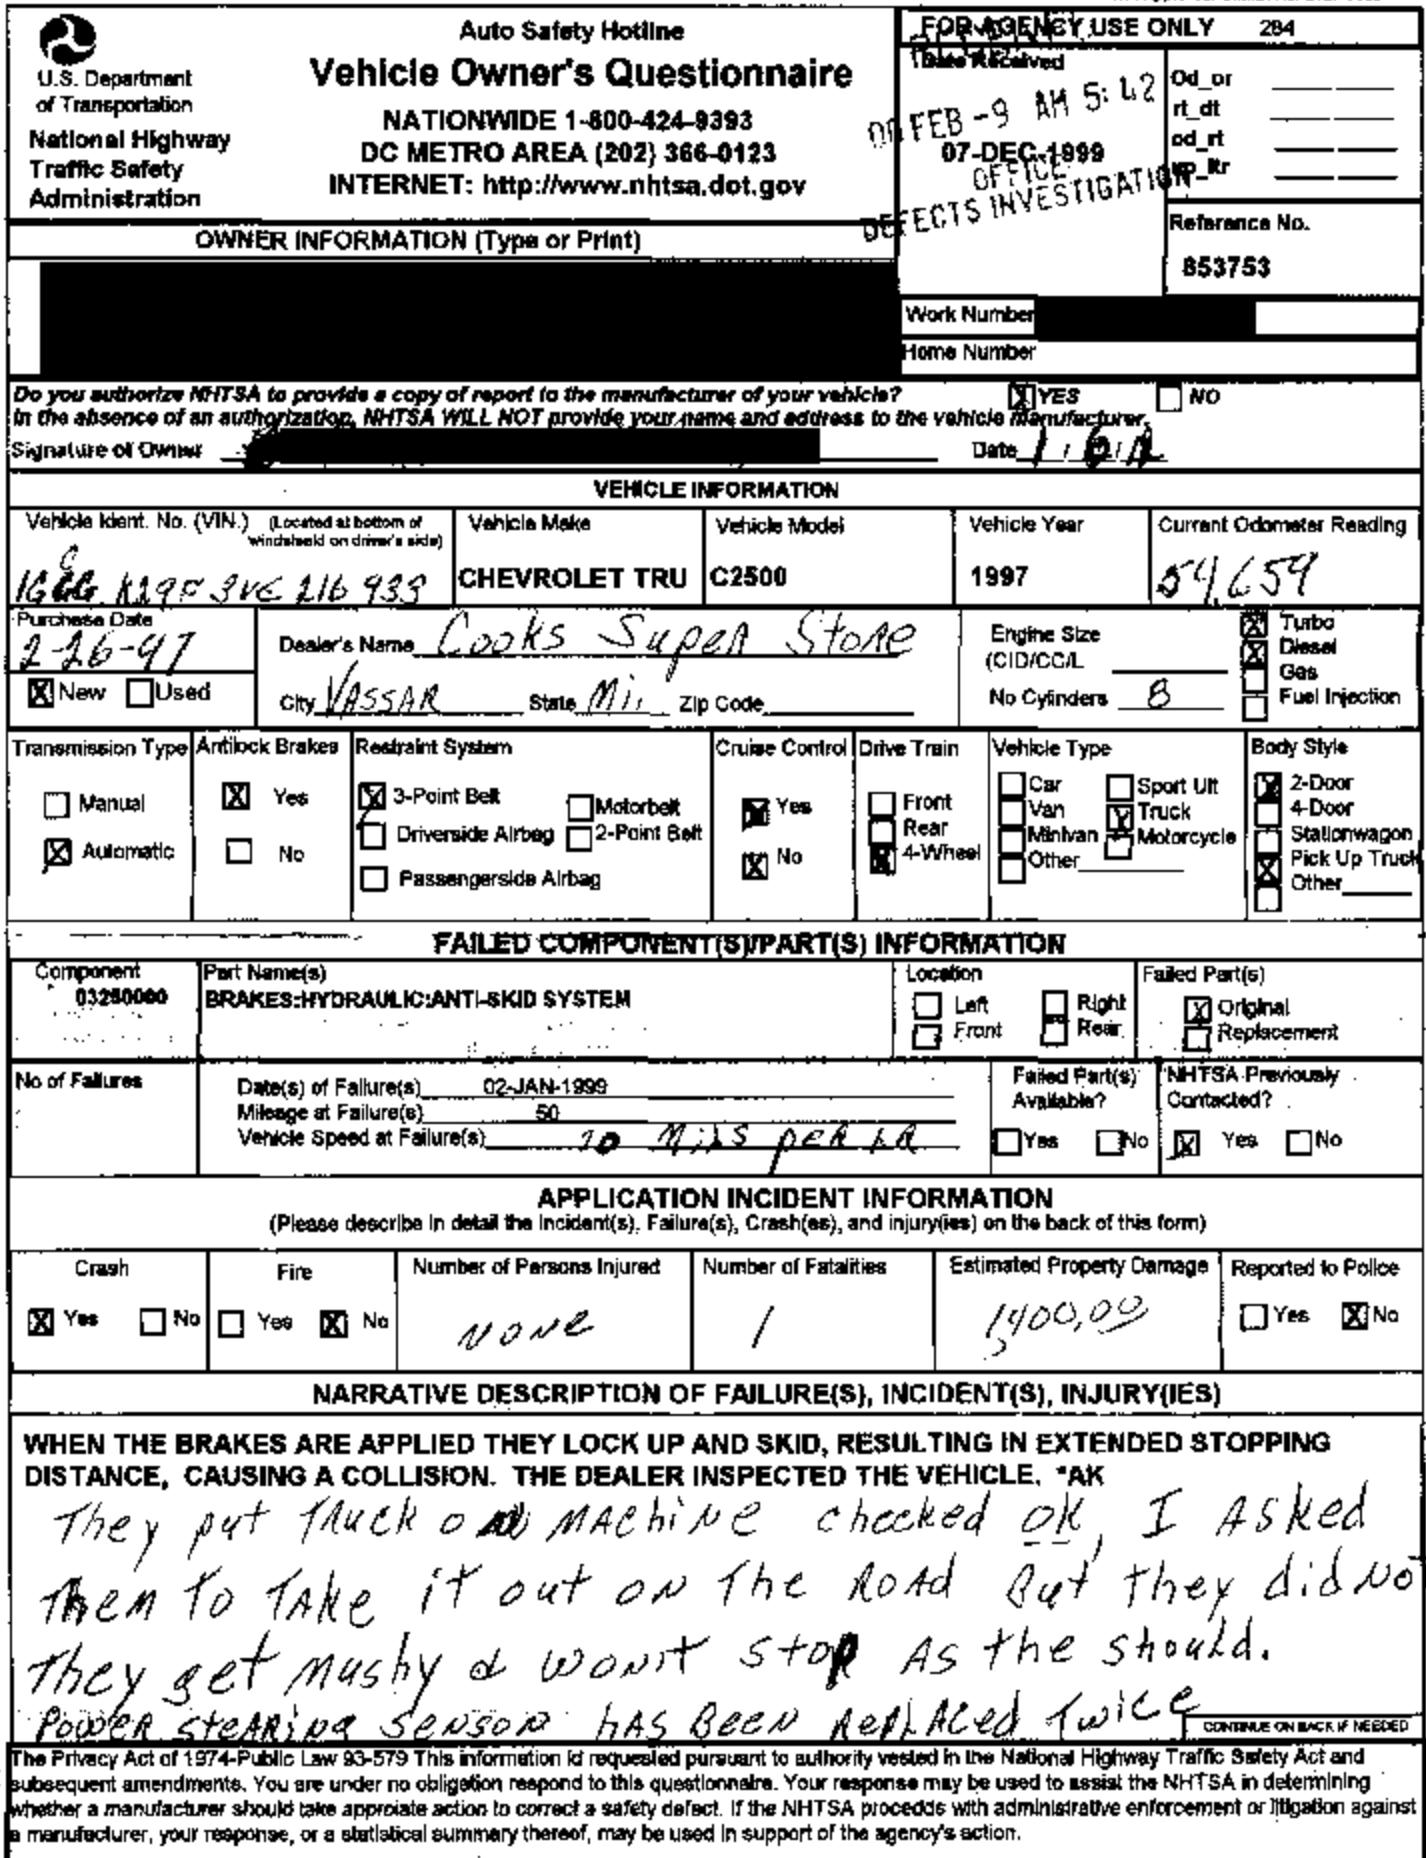 Auto Safety Hotline
Vehicle Owner's Questionnaire
NATIONWIDE 1-800-424-9393
DC METRO AREA (202) 366-0123
INTERNET: http://www.nhtsa.dot.gov
U.S. Department
of Transportation
National Highway
Traffic Safety
Administration
FOR AGENCY USE ONLY 284
Date Received
FEB -9 AM 5:42
07-DEC-1999
OFFICE
DEFECTS INVESTIGATION
Od_or
rt_dt
od_rt
up_ltr
Reference No.
853753
OWNER INFORMATION (Type or Print)
Work Number
Home Number
Do you authorize NHTSA to provide a copy of report to the manufacturer of your vehicle? YES NO
In the absence of an authorization, NHTSA WILL NOT provide your name and address to the vehicle manufacturer.
Signature of Owner Date
VEHICLE INFORMATION
Vehicle Ident. No. (VIN.) (Located at bottom of windshield on driver's side) Vehicle Make Vehicle Model Vehicle Year Current Odometer Reading
CHEVROLET TRU C2500 1997 54,659
Purchase Date
2-26-97
New Used
Dealer's Name Cooks Super Store
City VASSAR State Mi, Zip Code
Engine Size
(CID/CC/L
No Cylinders 8
Turbo
Diesel
Gas
Fuel Injection
Transmission Type Antilock Brakes Restraint System Cruise Control Drive Train Vehicle Type Body Style
Manual
Automatic
Yes
No
3-Point Belt Motorbelt
Driverside Airbag 2-Point Belt
Passengerside Airbag
Yes
No
Front
Rear
4-Wheel
Car Sport Ult
Van Truck
Minivan Motorcycle
Other
2-Door
4-Door
Stationwagon
Pick Up Truck
Other
FAILED COMPONENT(S)/PART(S) INFORMATION
Component
03250000
Part Name(s)
BRAKES:HYDRAULIC:ANTI-SKID SYSTEM
Location
Left Right
Front Rear
Failed Part(s)
Original
Replacement
No of Failures
Date(s) of Failure(s) 02-JAN-1999
Mileage at Failure(s) 50
Vehicle Speed at Failure(s) Mils per hR
Failed Part(s)
Available?
Yes No
NHTSA Previously
Contacted?
Yes No
APPLICATION INCIDENT INFORMATION
(Please describe in detail the Incident(s), Failure(s), Crash(es), and injury(ies) on the back of this form)
Crash Fire Number of Persons Injured Number of Fatalities Estimated Property Damage Reported to Police
Yes No Yes No NONE 1 1,400.00 Yes No
NARRATIVE DESCRIPTION OF FAILURE(S), INCIDENT(S), INJURY(IES)
WHEN THE BRAKES ARE APPLIED THEY LOCK UP AND SKID, RESULTING IN EXTENDED STOPPING
DISTANCE, CAUSING A COLLISION. THE DEALER INSPECTED THE VEHICLE. *AK
They put TRuck on MAchiNe checked OK, I ASked
Them To TAKe iT out oN The ROAd But they did No
They get Mushy & woN't Stop As the should.
PoweR SteARiNg SeNsoR hAS BeeN RePLAced TwicE
CONTINUE ON BACK IF NEEDED
The Privacy Act of 1974-Public Law 93-579 This information id requested pursuant to authority vested in the National Highway Traffic Safety Act and
subsequent amendments. You are under no obligation respond to this questionnaire. Your response may be used to assist the NHTSA in determining
whether a manufacturer should take approiate action to correct a safety defect. If the NHTSA procedds with administrative enforcement or litigation against
a manufacturer, your response, or a statistical summary thereof, may be used in support of the agency's action.